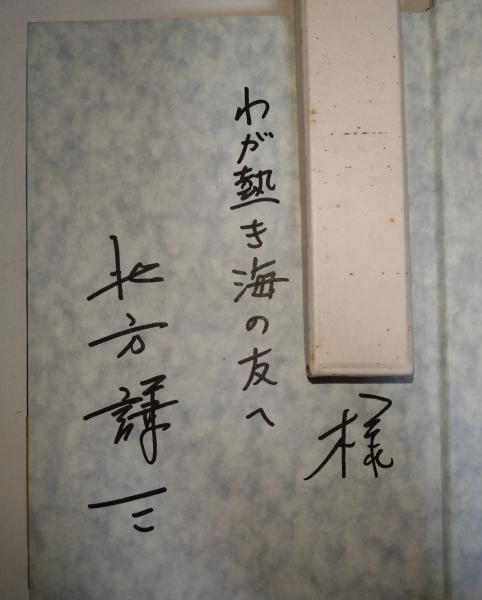 様
わが熱き海の友へ
北方謙三